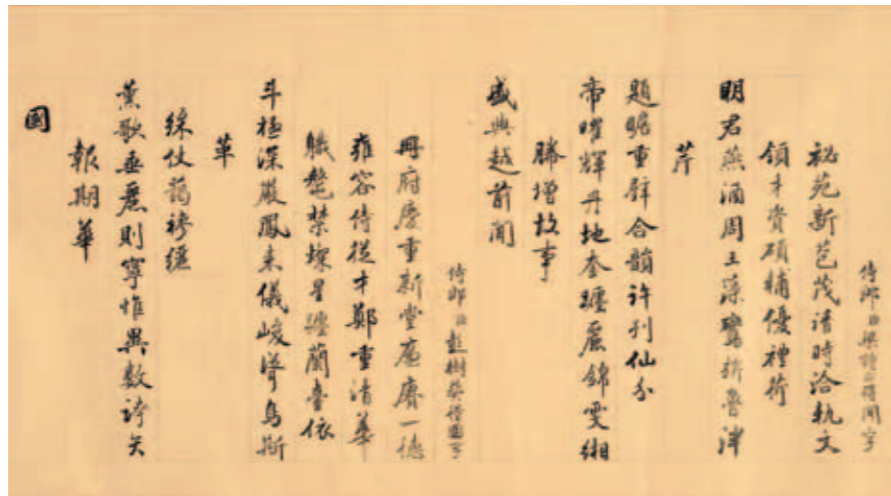 侍郎臣梁詩正得聞字
祕苑新芭茂清時洽軌文
領才資碩輔優禮荷
明君燕酒周王藻鸞旂魯泮
芹
題重璧合韻許列仙分
帝曜輝丹地奎躔麗錦雯緗
縢增故事
盛典越前聞
侍郎臣彭樹葵得國字
冊府慶重新堂廉賡一德
雍容侍從才鄭重清華
職鼇禁燦星躔蘭臺依
斗極深嚴鳳来儀峻聳鳥斯
革
綵仗藹
薰歌垂麗則寧惟異數誇矢
報期華
國